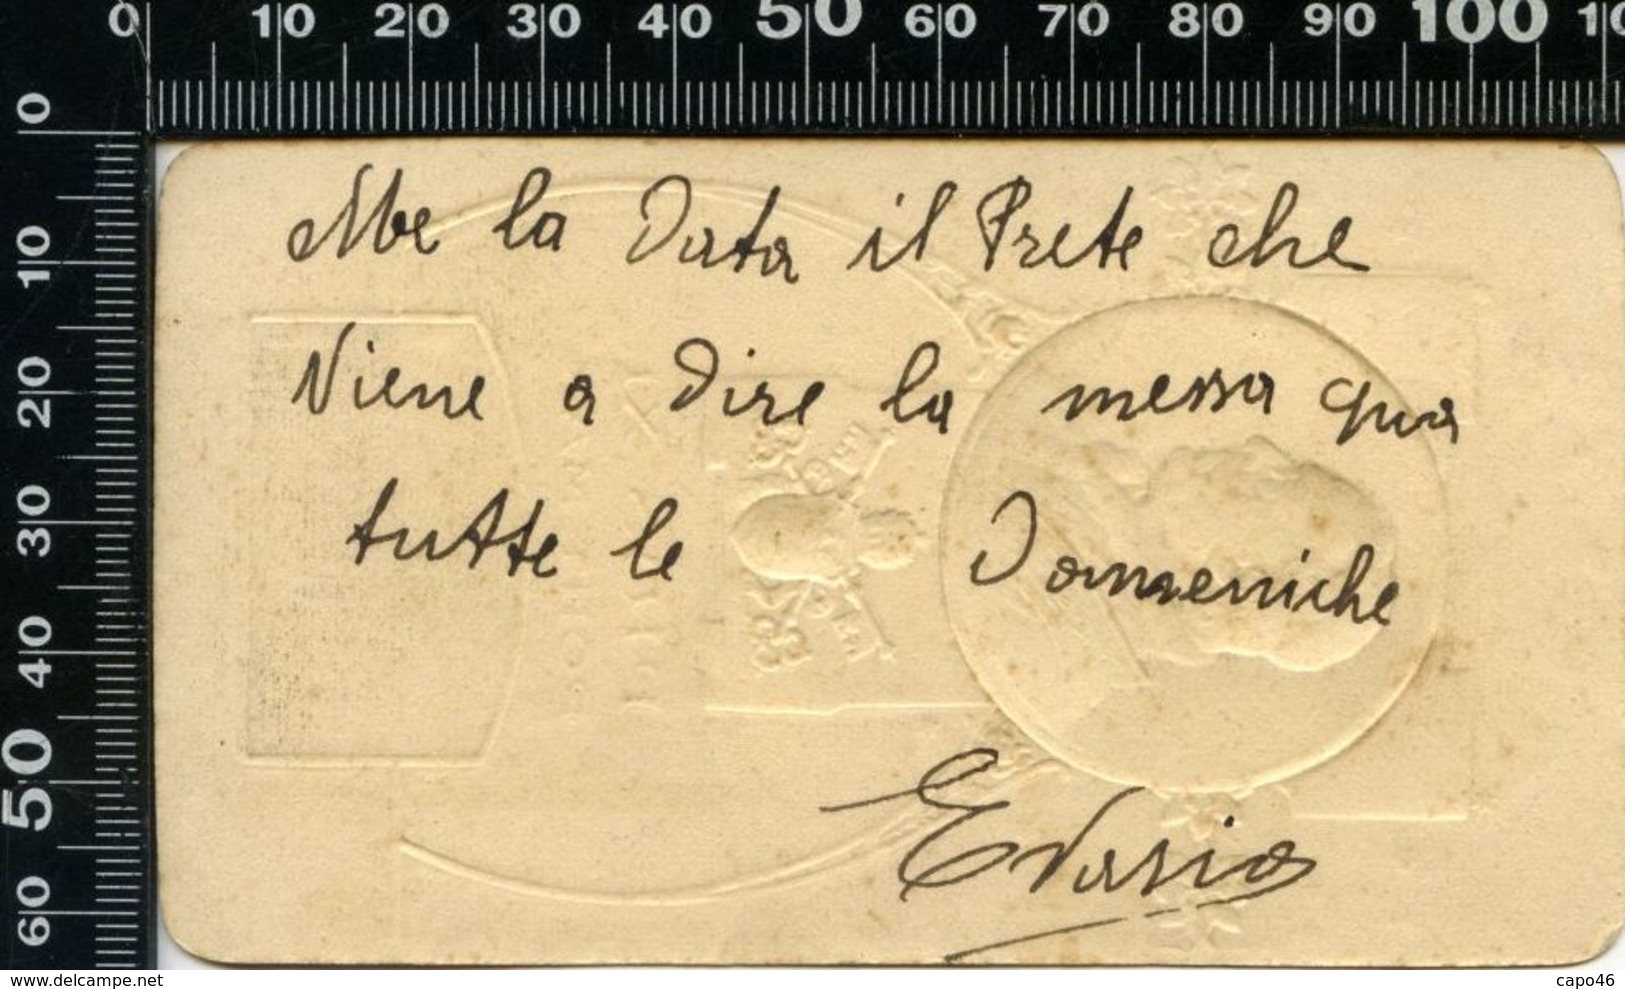 0 10 20 30 40 50 60 70 80 90 100
0
10
20
30
40
50
60
Me la Data il Prete che
Viene a Dire la messa qua
tutte le Domeniche
Evasio
www.delcampe.net
capo46